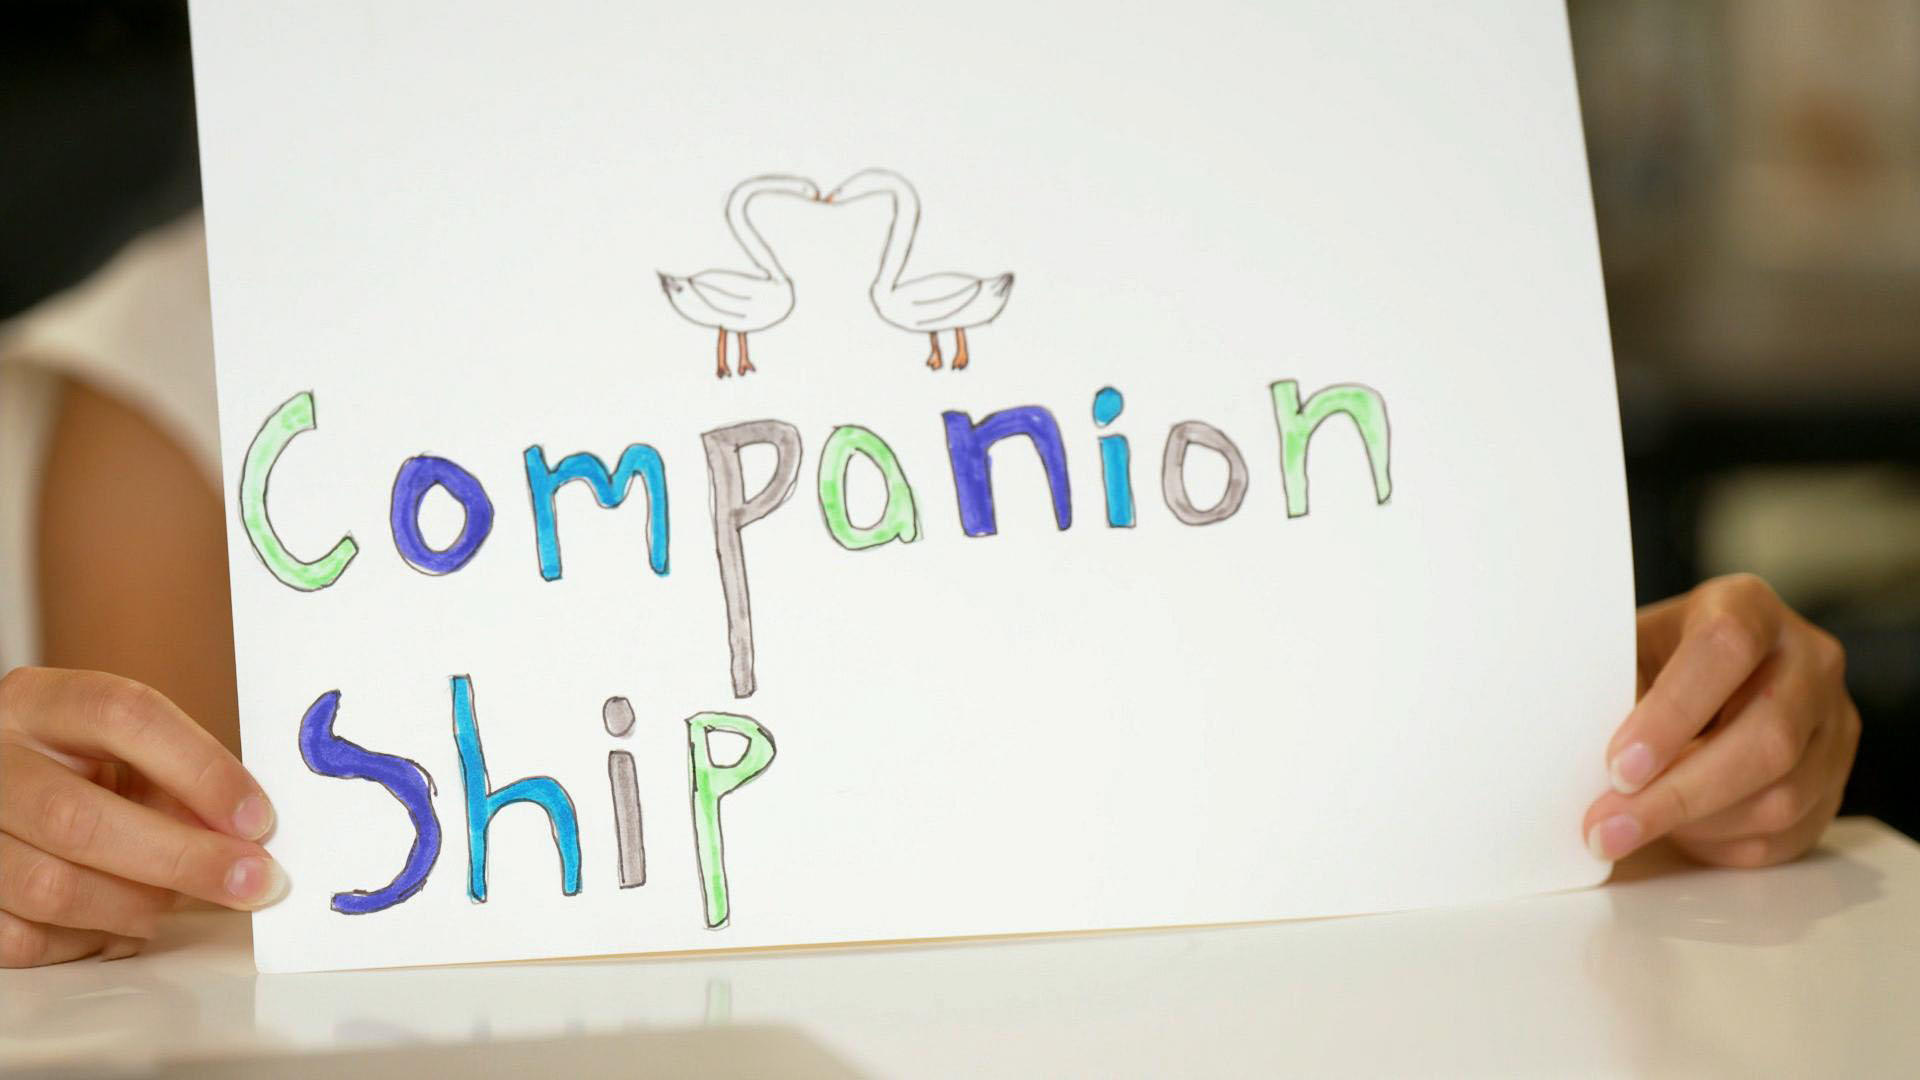 Companion
Ship